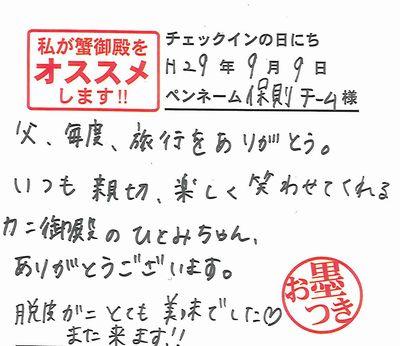 私が蟹御殿を
オススメ
します!!
チェックインの日にち
H29年9月9日
ペンネーム保則チーム様
父、毎度、旅行をありがとう。
いつも親切、楽しく笑わせてくれる
カニ御殿のひとみちゃん、
ありがとうございます。
脱皮がニとても美味でした♡
また来ます!!
お墨つき